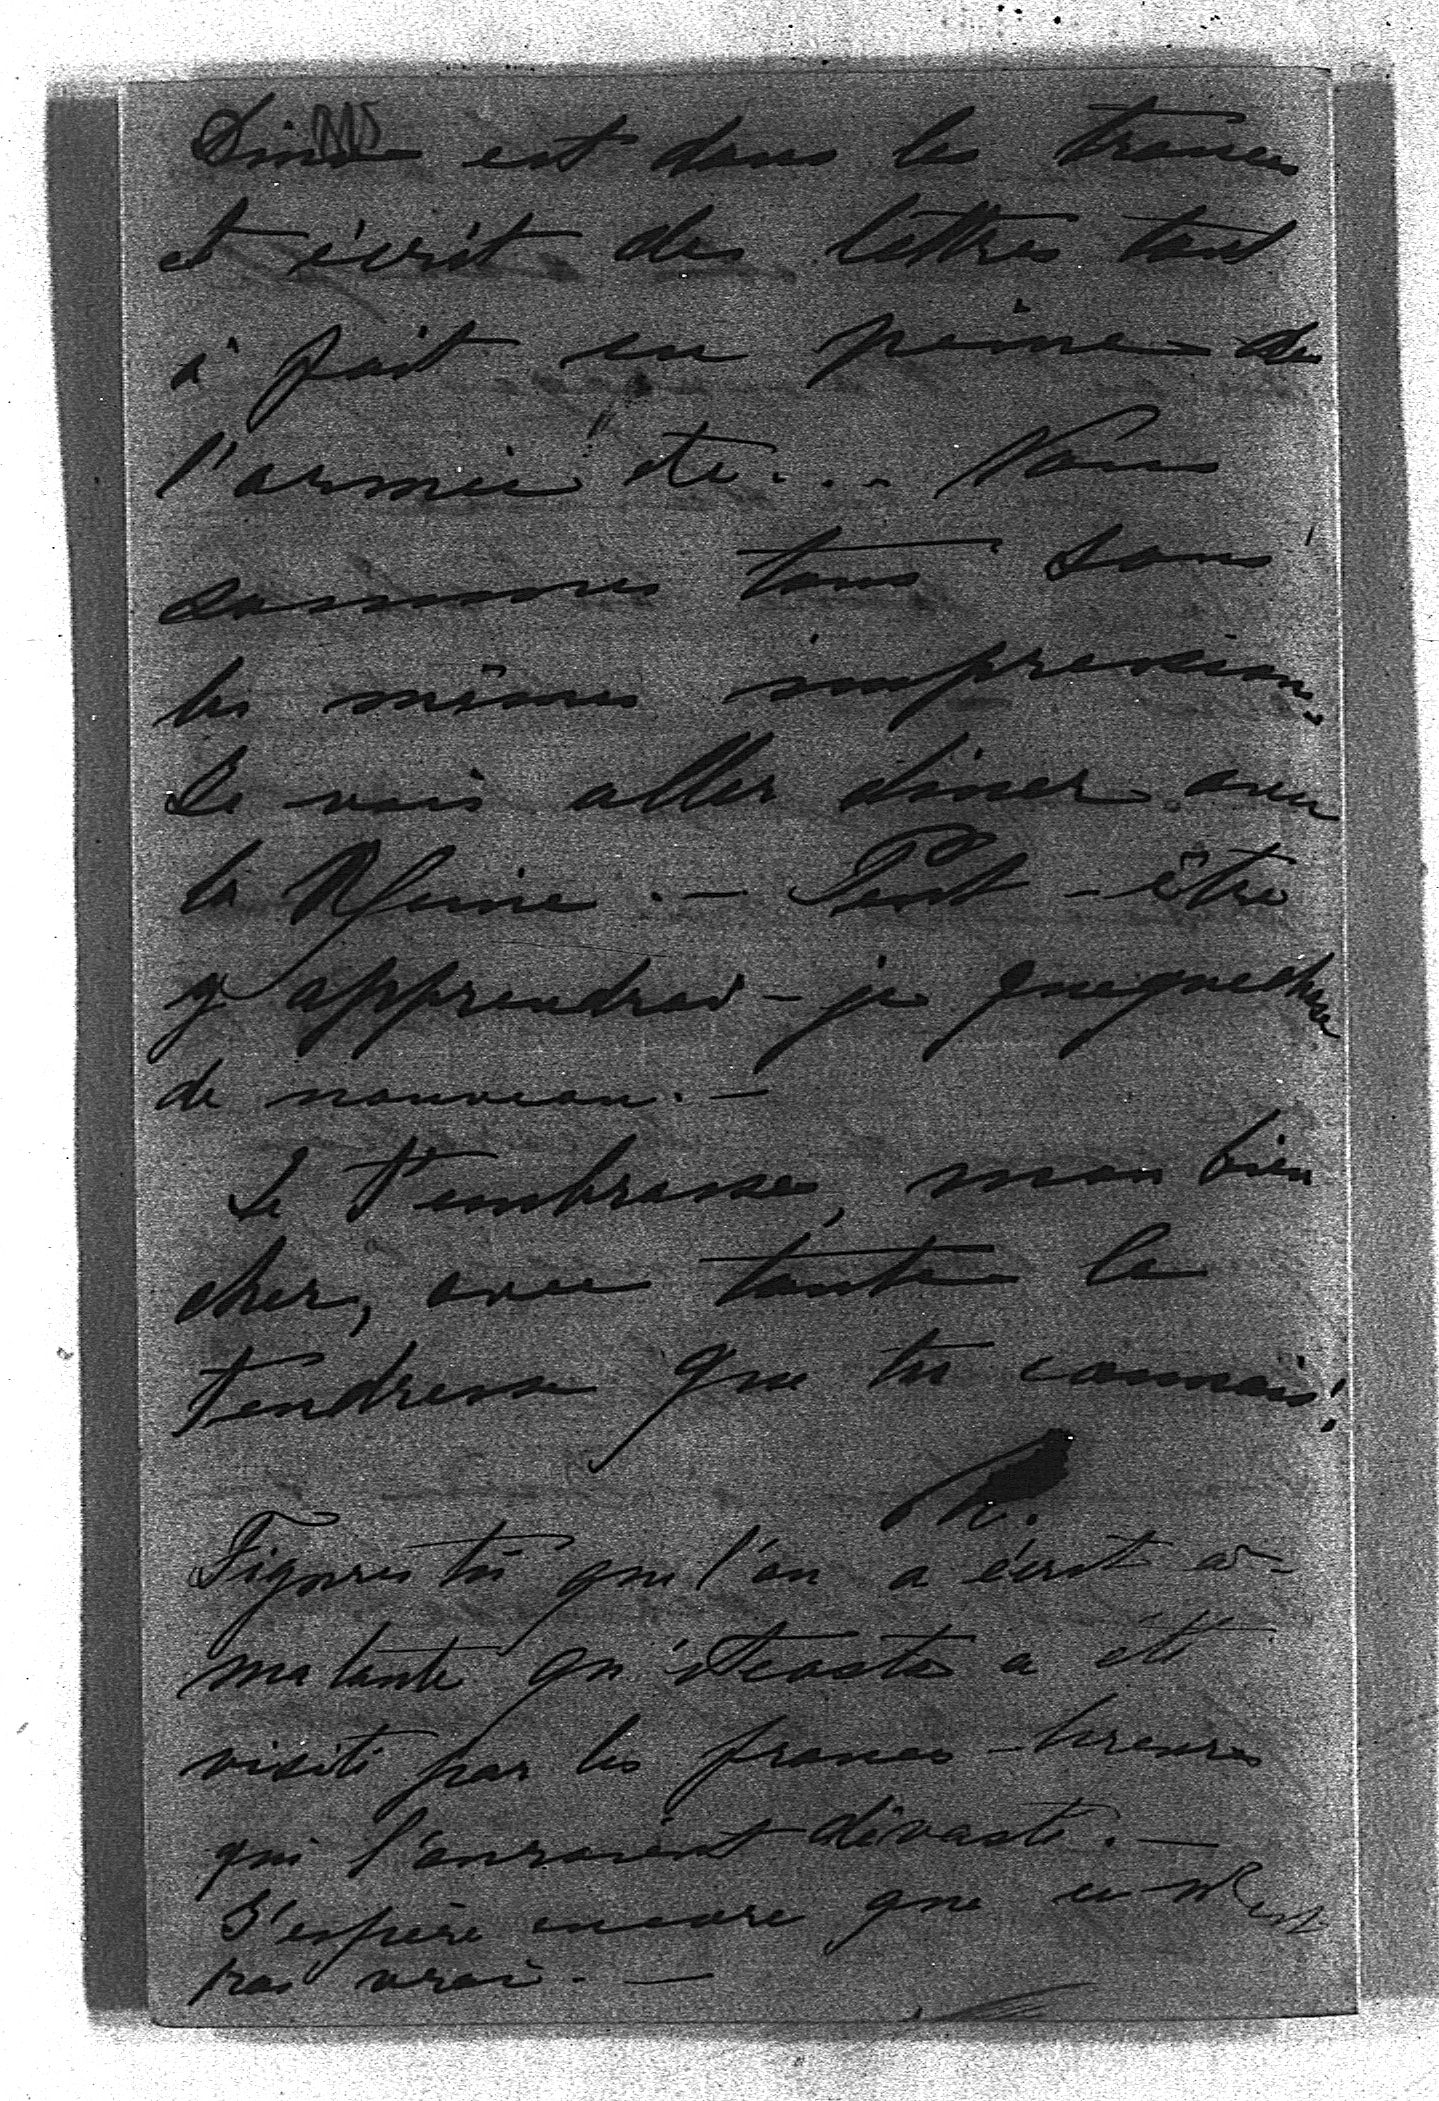 est dans les transes
et écrit des lettres tout
à fait en peine de
l'armée etc... Nous
sommes tous sous
les mêmes impressions.
Je vais aller diner avec
la Reine. — Peut-être
y apprendrai-je quequechose
de nouveau. —
Je t'embrasse, mon bien
cher, avec toute la
tendresse que tu connais!
Figures toi que l'on a écrit à
ma tante qu' a été
visité par les francs-tireurs
qui l'auraient dévasté. —
J'espère encore que ce n'est
pas vrai. —